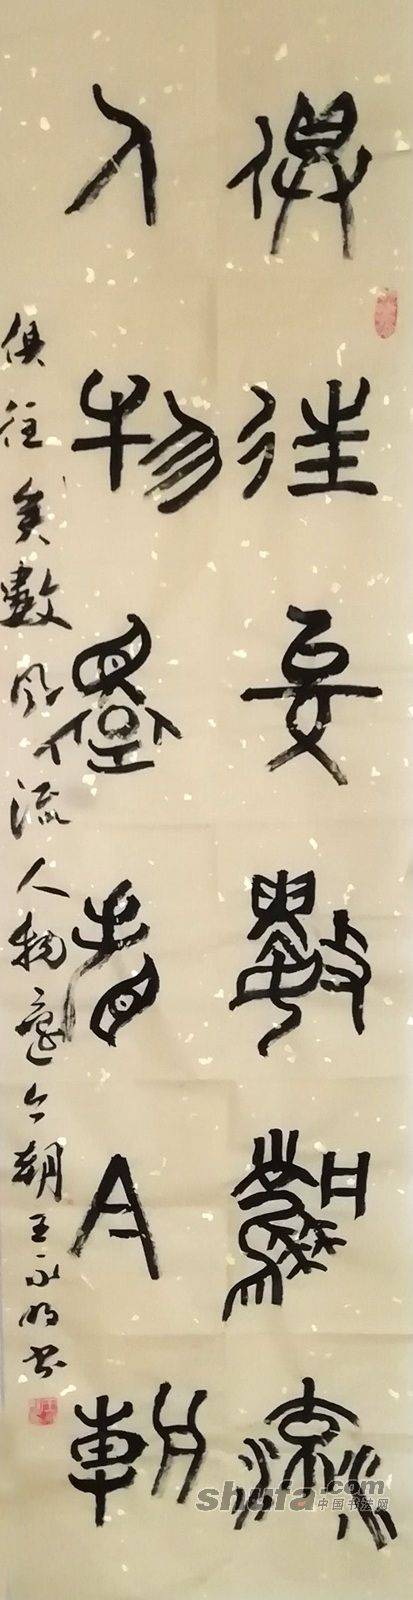 俱往矣數風流
人物還看今朝
俱往矣數风流人物還今朝王永明书
shufa.com
中国书法网